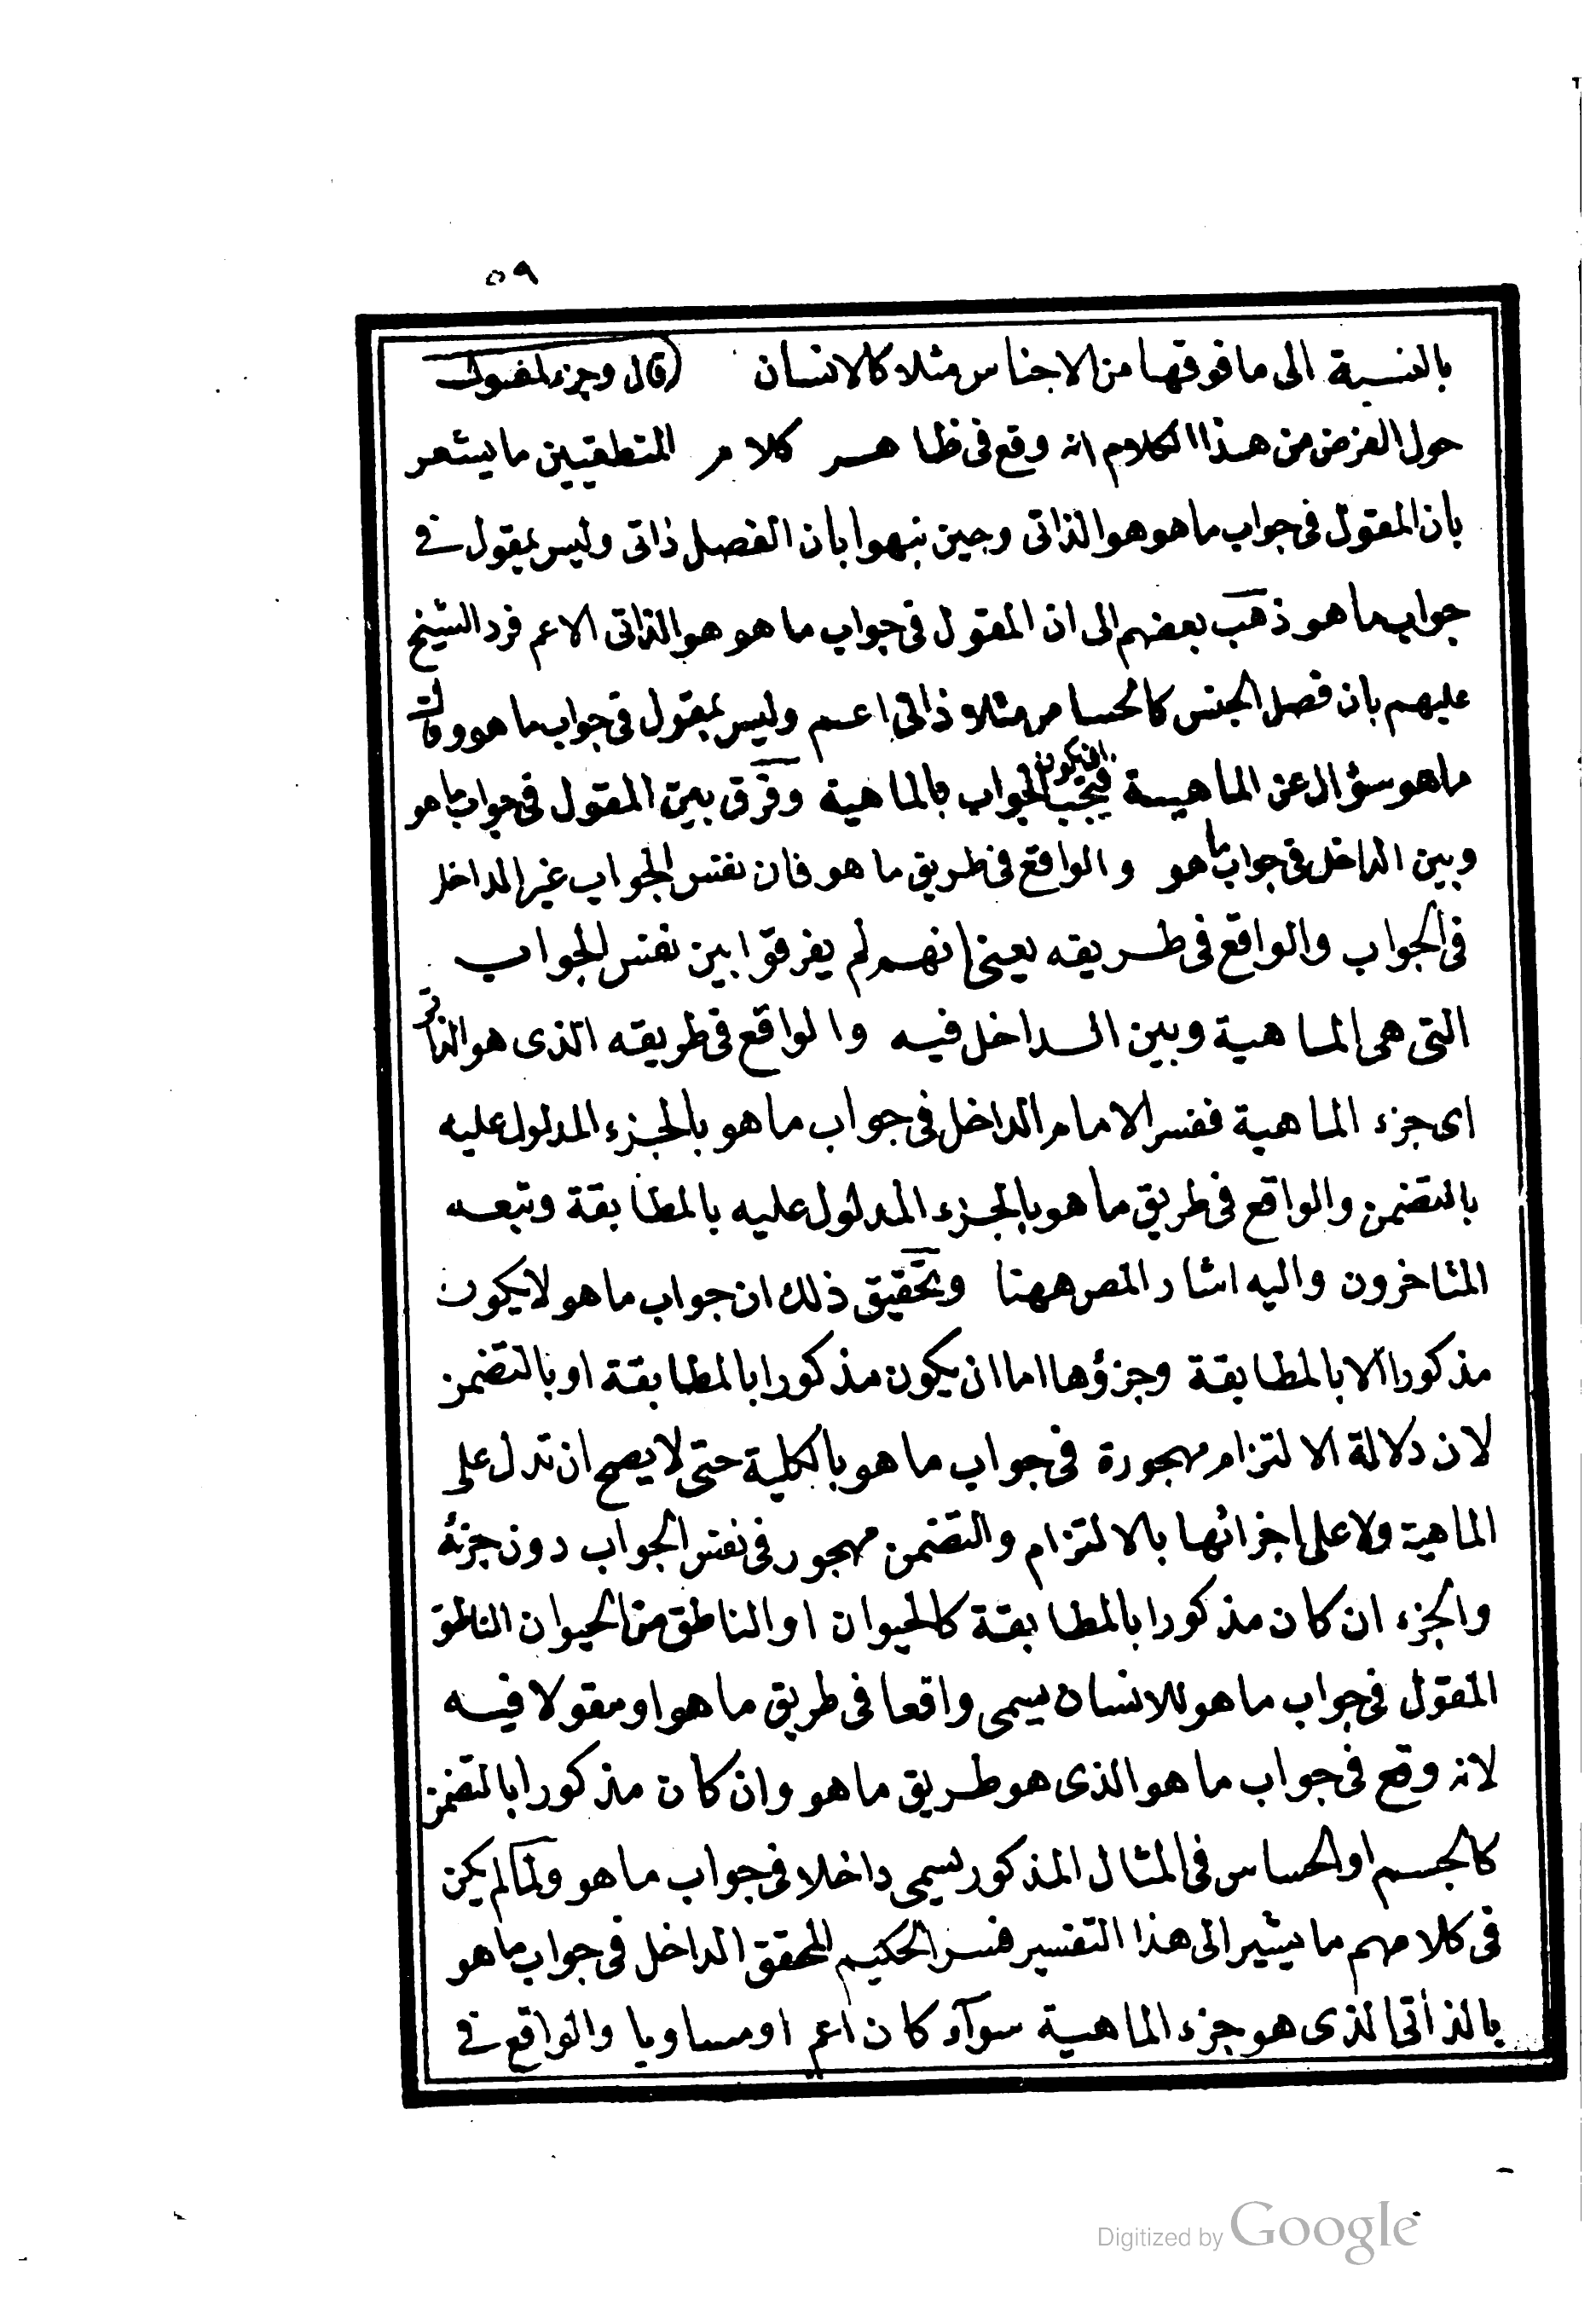 ٥٩
بالنسبة الى ما فوقها من الاجناس مثلا كالانسان (قال وجزء المقول
حول الغرض من هذا الكلام انه وقع فى ظاهر كلام المنطقيين ما يشعر
بان المقول فى جواب ما هو هو الذاتى وحين نبهوا بان الفصل ذاتى وليس بمقول فى
جواب ما هو ذهب بعضهم الى ان المقول فى جواب ما هو هو الذاتى الاعم فرد الشيخ
عليهم بان فصل الجنس كالحساس مثلا ذاتى اعم وليس بمقول فى جواب ما هو وقال
ما هو سؤال عن الماهية فيجب ان يكون الجواب بالماهية وفرق بين المقول فى جواب ما هو
وبين الداخل فى جواب ما هو والواقع فى طريق ما هو فان نفس الجواب غير الداخل
فى الجواب والواقع فى طريقه يعنى انهم لم يفرقوا بين نفس الجواب
التى هى الماهية وبين الداخل فيه والواقع فى طريقه الذى هو الذاتى
اى جزء الماهية ففسر الامام الداخل فى جواب ما هو بالجزء المدلول عليه
بالتضمن والواقع فى طريق ما هو بالجزء المدلول عليه بالمطابقة وتبعه
المتاخرون واليه اشار المص ههنا وتحقيق ذلك ان جواب ما هو لا يكون
مذكورا الا بالمطابقة وجزؤها اما ان يكون مذكورا بالمطابقة او بالتضمن
لان دلالة الالتزام مهجورة فى جواب ما هو بالكلية حتى لا يصح ان تدل على
الماهية ولا على اجزائها بالالتزام والتضمن مهجور فى نفس الجواب دون جزئه
والجزء ان كان مذكورا بالمطابقة كالحيوان او الناطق من الحيوان الناطق
المقول فى جواب ما هو للانسان يسمى واقعا فى طريق ما هو او مقولا فيه
لانه وقع فى جواب ما هو الذى هو طريق ما هو وان كان مذكورا بالتضمن
كالجسم او الحساس فى المثال المذكور يسمى داخلا فى جواب ما هو ولما لم يكن
فى كلامهم ما يشير الى هذا التفسير فسر الحكيم المحقق الداخل فى جواب ما هو
بالذاتى الذى هو جزء الماهية سوآء كان اعم او مساويا والواقع فى
Digitized by Google